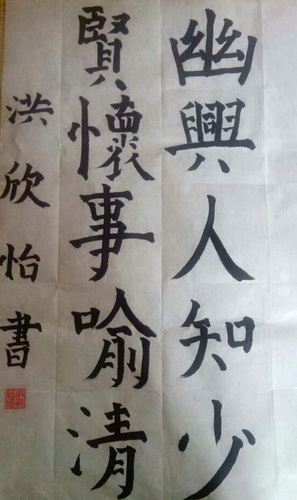 幽興人知少
賢懷事喻清
洪欣怡書